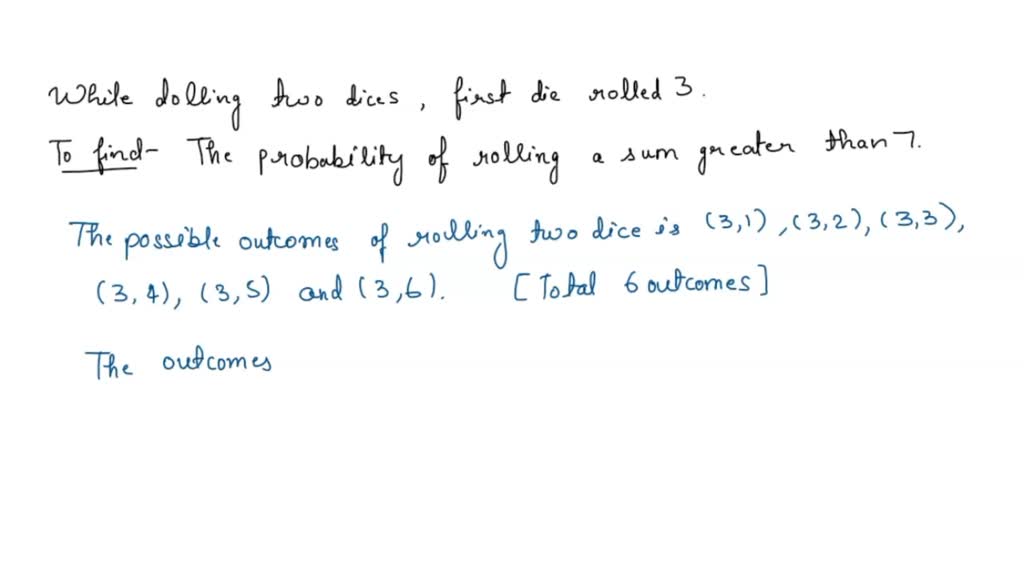 While dolling two dices, first die rolled 3.
To find- The probability of rolling a sum greater than 7.
The possible outcomes of rolling two dice is (3,1), (3,2), (3,3),
(3,4), (3,5) and (3,6). [Total 6 outcomes]
The outcomes